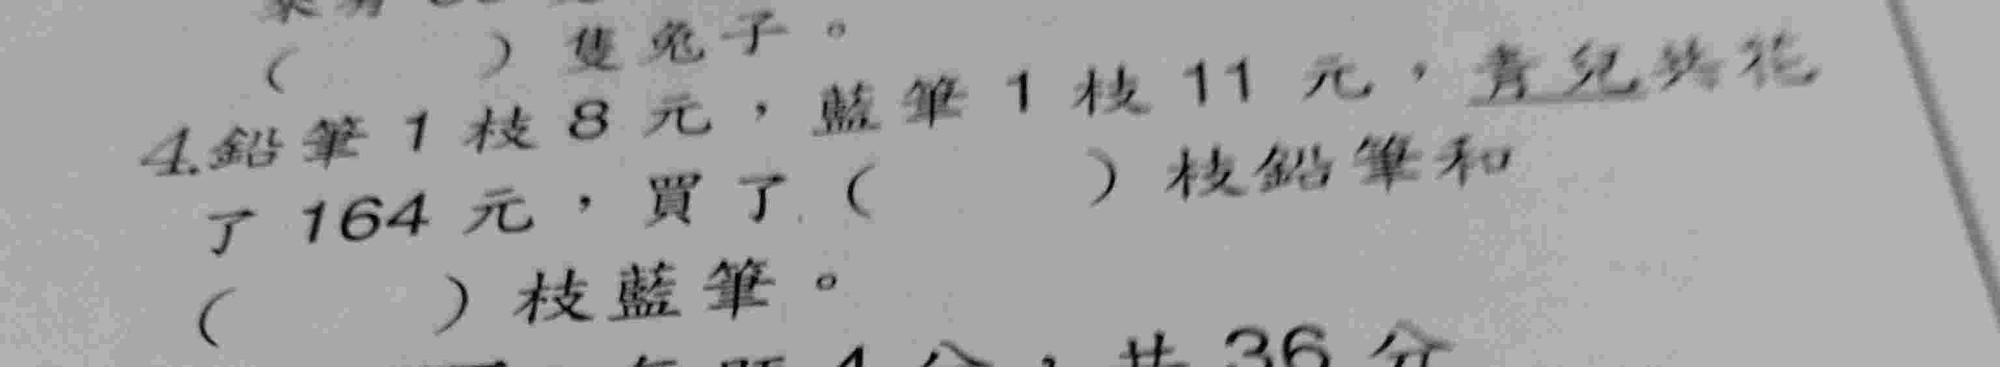 (　　)隻兔子。
4.鉛筆1枝8元，藍筆1枝11元，青兒共花
了164元，買了(　　)枝鉛筆和
(　　)枝藍筆。
4分，共36分